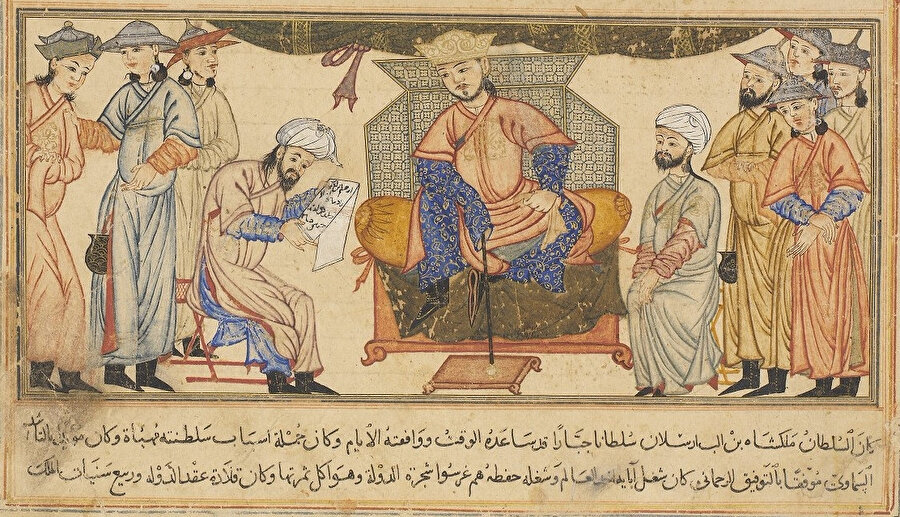 كان السلطان ملكشاه بن الب ارسلان سلطانا جبارا قد ساعده الوقت ووافقته الايام وكان جملة اسباب سلطنته مهيأة وكان
السماوى موفقا بالتوفيق الرحمانى كان شغل آبايه العالم وشغله حفظه هم غرسوا شجرة الدولة وهو اكل ثمرتها وكان قلادة عقد الدولة وربيع الملك